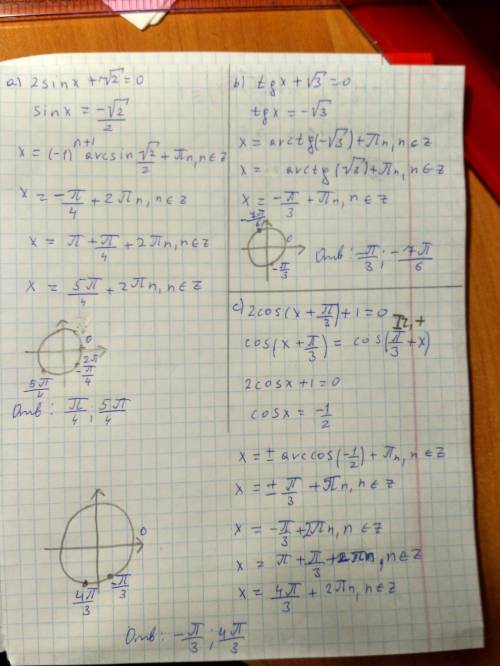 a) 2sinx + √2 = 0
sinx = -√2/2
x = (-1)^(n+1) arcsin √2/2 + πn, n∈Z
x = -π/4 + 2πn, n∈Z
x = π + π/4 + 2πn, n∈Z
x = 5π/4 + 2πn, n∈Z
0
2π
-π/4
5π/4
Отв: π/4; 5π/4
b) tgx + √3 = 0
tgx = -√3
x = arctg(-√3) + πn, n∈Z
x = - arctg(√3) + πn, n∈Z
x = -π/3 + πn, n∈Z
-7π/6
0
-π/3
Отв: -π/3; -7π/6
c) 2cos(x + π/3) + 1 = 0
cos(x + π/3) = cos(π/3 + x)
2cosx + 1 = 0
cosx = -1/2
x = ± arccos(-1/2) + πn, n∈Z
x = ± π/3 + πn, n∈Z
x = -π/3 + 2πn, n∈Z
x = π + π/3 + 2πn, n∈Z
x = 4π/3 + 2πn, n∈Z
0
4π/3
-π/3
Отв: -π/3; 4π/3